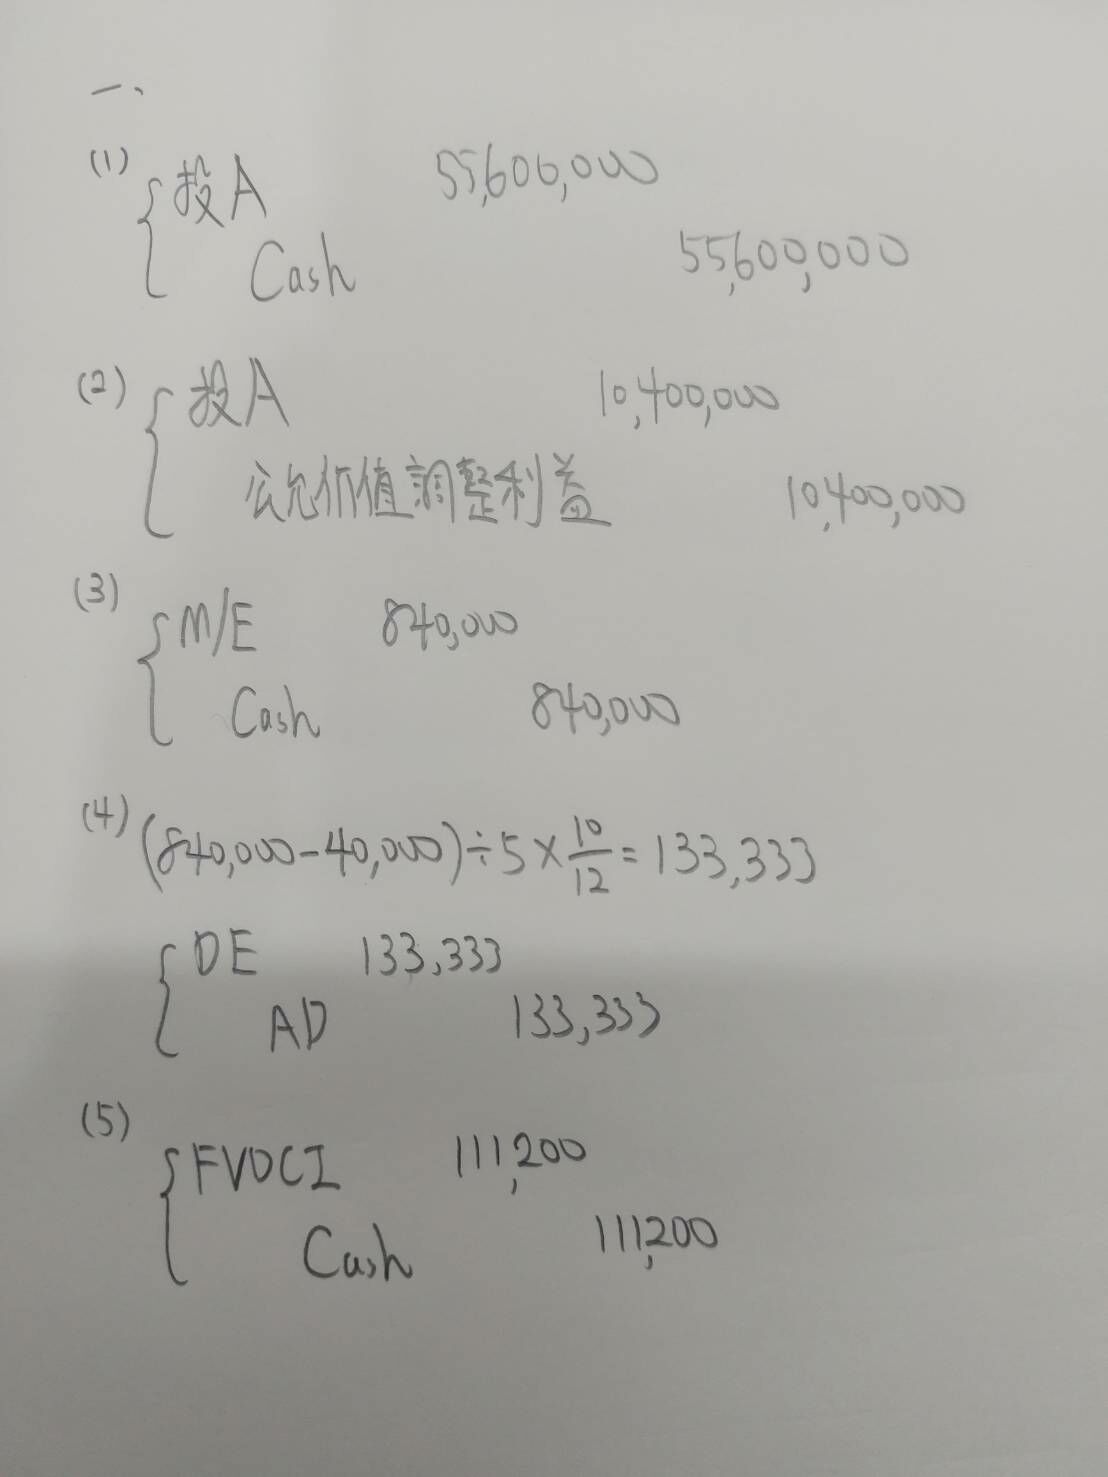 一、
(1) 投A 55,600,000
Cash 55,600,000
(2) 投A 10,400,000
公允価值調整利益 10,400,000
(3) M/E 840,000
Cash 840,000
(4) (840,000-40,000)÷5×10/12=133,333
DE 133,333
AD 133,333
(5) FVOCI 111,200
Cash 111,200